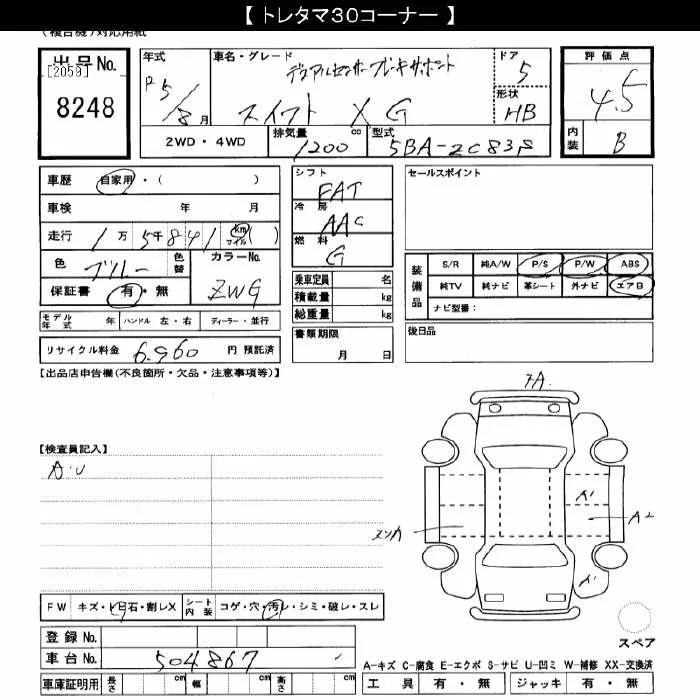 【トレタマ30コーナー】
(複合機)対応用紙
出品No. [2059] 8248
年式 R5/8月
車名・グレード デュアルセンサーブレーキサポート
スイフト XG
ドア 5
形状 HB
評価点 4.5
内装 B
2WD・4WD 排気量 1200 cc 型式 5BA-ZC83S
車歴 自家用・( )
車検 年 月
走行 1万5千841(km マイル)
色 ブルー 色替 カラーNo. ZWG
保証書 有・無
シフト FAT
冷房 AAC
燃料 G
乗車定員 名
積載量 kg
総重量 kg
セールスポイント
装備品 S/R 純A/W P/S P/W ABS
純TV 純ナビ 革シート 外ナビ エアB
ナビ型番:
モデル年式 年 ハンドル 左・右 ディーラー・並行
書類期限 月 日
後日品
リサイクル料金 6,960 円 預託済
【出品店申告欄(不良箇所・欠品・注意事項等)】
【検査員記入】
A・U
FA
A1
A2
A1
FW キズ・ト日石・割レX シート内装 コゲ・穴・汚レ・シミ・破レ・スレ
スペア
登録No.
車台No. 504867
A-キズ C-腐食 E-エクボ S-サビ U-凹ミ W-補修 XX-交換済
車庫証明用 長さ cm 幅 cm 高さ cm
工具 有・無 ジャッキ 有・無